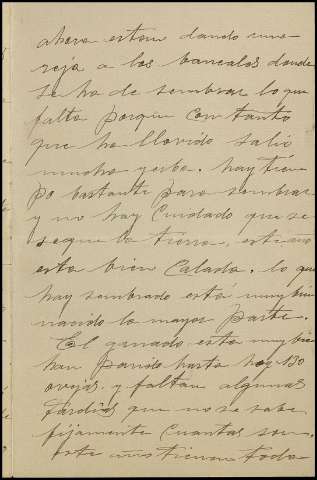 ahora estan dando una
reja a los bancales donde
se ha de sembrar lo que
falta porque con tanto
que ha llovido salio
mucha yerba. hay tiem
po bastante para sembrar
y no hay Cuidado que se
seque la tierra, este año
esta bien Calada. lo que
hay sembrado está muy bien
nacido la mayor parte.
El ganado esta muy bien
han parido hasta hoy 130
ovejas. y faltan algunas
tardias que no se sabe
fijamente cuantas son.
este año tienen todo